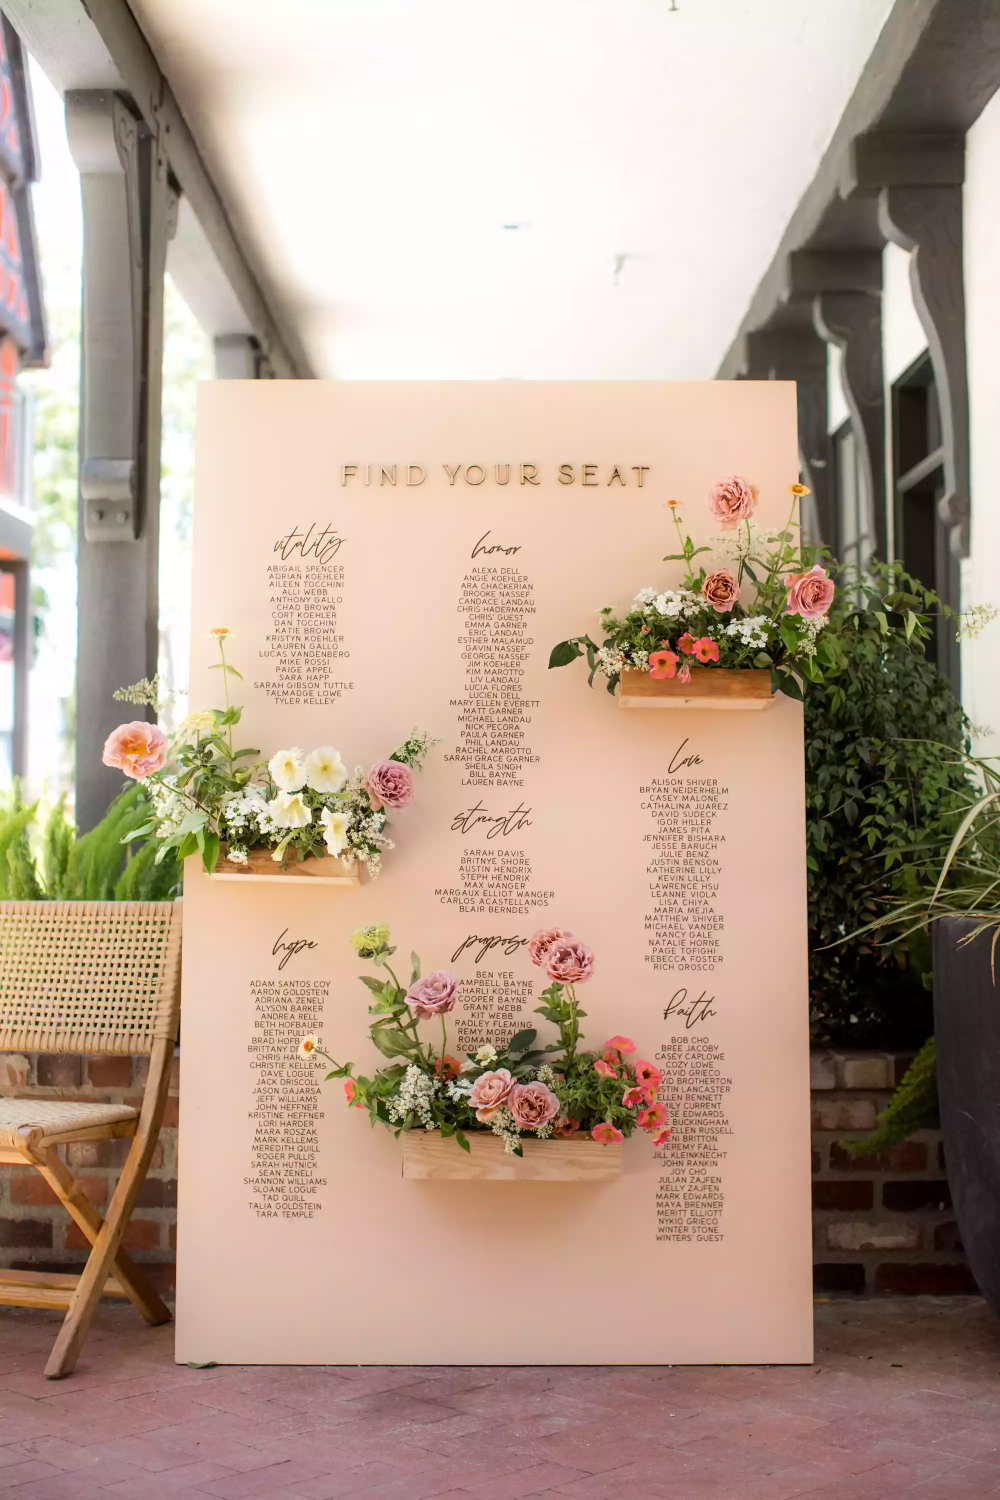 FIND YOUR SEAT
vitality
ABIGAIL SPENCER
ADRIAN KOEHLER
AILEEN TOCCHINI
ALLI WEBB
ANTHONY GALLO
CHAD BROWN
CORT KOEHLER
DAN TOCCHINI
KATIE BROWN
KRISTYN KOEHLER
LAUREN GALLO
LUCAS VANDENBERG
MIKE ROSSI
PAIGE APPEL
SARA HAPP
SARAH GIBSON TUTTLE
TALMADGE LOWE
TYLER KELLEY
hope
ADAM SANTOS COY
AARON GOLDSTEIN
ADRIANA ZENELI
ALYSON BARKER
ANDREA RELL
BETH HOFBAUER
BETH PULLIS
BRAD
BRITTANY
CHRIS
CHRISTIE KELLEMS
DAVE LOGUE
JACK DRISCOLL
JASON GAJARSA
JEFF WILLIAMS
JOHN HEFFNER
KRISTINE HEFFNER
LORI HARDER
MARA ROSZAK
MARK KELLEMS
MEREDITH QUILL
ROGER PULLIS
SARAH HUTNICK
SEAN ZENELI
SHANNON WILLIAMS
SLOANE LOGUE
TAD QUILL
TALIA GOLDSTEIN
TARA TEMPLE
honor
ALEXA DELL
ANGIE KOEHLER
ARA CHACKERIAN
BROOKE NASSEF
CANDACE LANDAU
CHRIS HADERMANN
CHRIS' GUEST
EMMA GARNER
ERIC LANDAU
ESTHER MALAMUD
GAVIN NASSEF
GEORGE NASSEF
JIM KOEHLER
KIM MAROTTO
LIV LANDAU
LUCIA FLORES
LUCIEN DELL
MARY ELLEN EVERETT
MATT GARNER
MICHAEL LANDAU
NICK PECORA
PAULA GARNER
PHIL LANDAU
RACHEL MAROTTO
SARAH GRACE GARNER
SHEILA SINGH
BILL BAYNE
LAUREN BAYNE
strength
SARAH DAVIS
BRITNYE SHORE
AUSTIN HENDRIX
STEPH HENDRIX
MAX WANGER
MARGAUX ELLIOT WANGER
CARLOS ACASTELLANOS
BLAIR BERNDES
purpose
BEN YEE
AMPBELL BAYNE
HARLI KOEHLER
COOPER BAYNE
GRANT WEBB
KIT WEBB
RADLEY FLEMING
REMY
ROMAN
love
ALISON SHIVER
BRYAN NEIDERHELM
CASEY MALONE
CATHALINA JUAREZ
DAVID SUDECK
IGOR HILLER
JAMES PITA
JENNIFER BISHARA
JESSE BARUCH
JULIE BENZ
JUSTIN BENSON
KATHERINE LILLY
KEVIN LILLY
LAWRENCE HSU
LEANNE VIOLA
LISA CHIYA
MARIA MEJIA
MATTHEW SHIVER
MICHAEL VANDER
NANCY GALE
NATALIE HORNE
PAGE TOFIGHI
REBECCA FOSTER
RICH OROSCO
faith
BOB CHO
BREE JACOBY
CASEY CAPLOWE
COZY LOWE
DAVID GRIECO
VID BROTHERTON
STIN LANCASTER
ELLEN BENNETT
MILY CURRENT
ESE EDWARDS
E BUCKINGHAM
ELLEN RUSSELL
ENI BRITTON
JEREMY FALL
JILL KLEINKNECHT
JOHN RANKIN
JOY CHO
JULIAN ZAJFEN
KELLY ZAJFEN
MARK EDWARDS
MAYA BRENNER
MERITT ELLIOTT
NYKIO GRIECO
WINTER STONE
WINTERS' GUEST